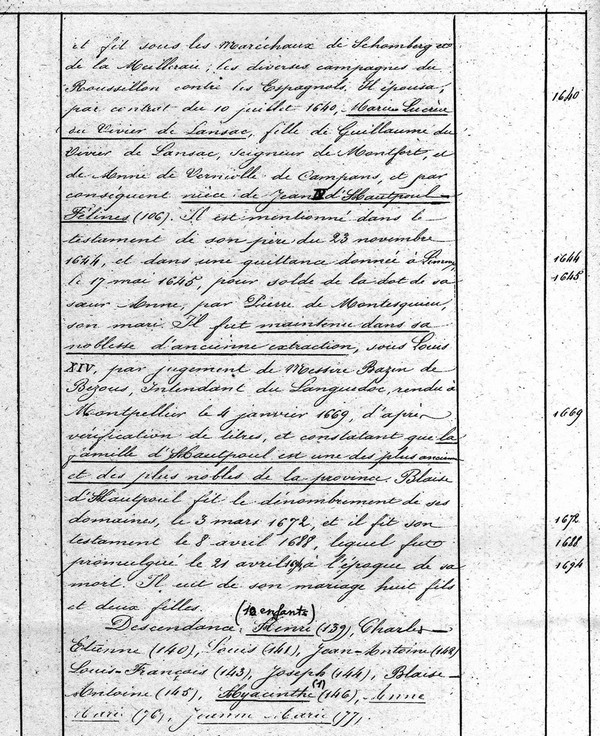 et fit sous les Maréchaux de Schomberg et
de la Meilleraie, les diverses campagnes du
Roussillon contre les Espagnols. Il épousa,
par contrat du 10 juillet 1640, Marie Lucrèce 1640
du Vivier de Lansac, fille de Guillaume du
Vivier de Lansac, seigneur de Montfort, et
de Anne de Verniolle de Campans, et par
conséquent nièce de Jean IV d'Hautpoul-
Félines (106). Il est mentionné dans le
testament de son père du 23 novembre
1644, et dans une quittance donnée à Limoux, 1644
le 17 mai 1645, pour solde de la dot de sa 1645
sœur Anne, par Pierre de Montesquieu,
son mari. Il fut maintenu dans sa
noblesse d'ancienne extraction, sous Louis
XIV, par jugement de Messire Bazin de
Bezous, Intendant du Languedoc, rendu à
Montpellier le 4 janvier 1669, d'après 1669
vérification de titres, et constatant que la
famille d'Hautpoul est une des plus anciennes
et des plus nobles de la province. Blaise
d'Hautpoul fit le dénombrement de ses
domaines, le 3 mars 1672, et il fit son 1672
testament le 8 avril 1688, lequel fut 1688
promulgué le 21 avril 1694 à l'époque de sa 1694
mort. Il eut de son mariage huit fils
et deux filles.
(10 enfants)
Descendance: Henri (139), Charles-
Etienne (140), Louis (141), Jean-Antoine (142)
Louis-François (143), Joseph (144), Blaise-
Antoine (145), Hyacinthe (1) (146), Anne
Marie (76), Jeanne Marie (77).